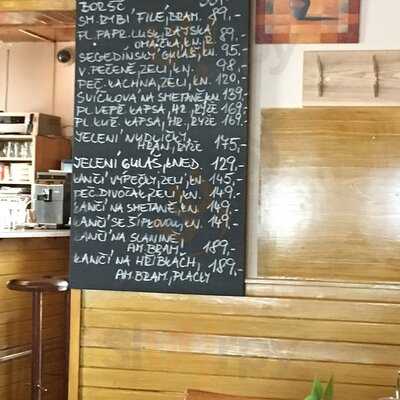 BORŠČ 39,-
SM. RYBÍ FILÉ, BRAM. 89,-
PL. PAPR. LUSK, RAJSKÁ
OMÁČKA, KN. 89,-
SEGEDÍNSKÝ GULÁŠ, KN. 95,-
V. PEČENĚ, ZELÍ, KN. 98,-
PEČ. KACHNA, ZELÍ, KN. 120,-
SVÍČKOVÁ NA SMETANĚ, KN. 139,-
PL. VEPŘ. KAPSA, HR., RÝŽE 169,-
PL. KUŘ. KAPSA, HR., RÝŽE 169,-
JELENÍ NUDLIČKY,
HRAN., RÝŽE 175,-
JELENÍ GULÁŠ, KNED. 129,-
KANČÍ VÝPEČKY, ZELÍ, KN. 145,-
PEČ. DIVOČÁK, ZELÍ, KN. 149,-
KANČÍ NA SMETANĚ, KN. 149,-
KANČÍ SE ŠÍPKOVOU, KN. 149,-
KANČÍ NA SLANINĚ,
AM. BRAM. 189,-
KANČÍ NA HŘIBKÁCH, 189,-
AM. BRAM., PLACKY